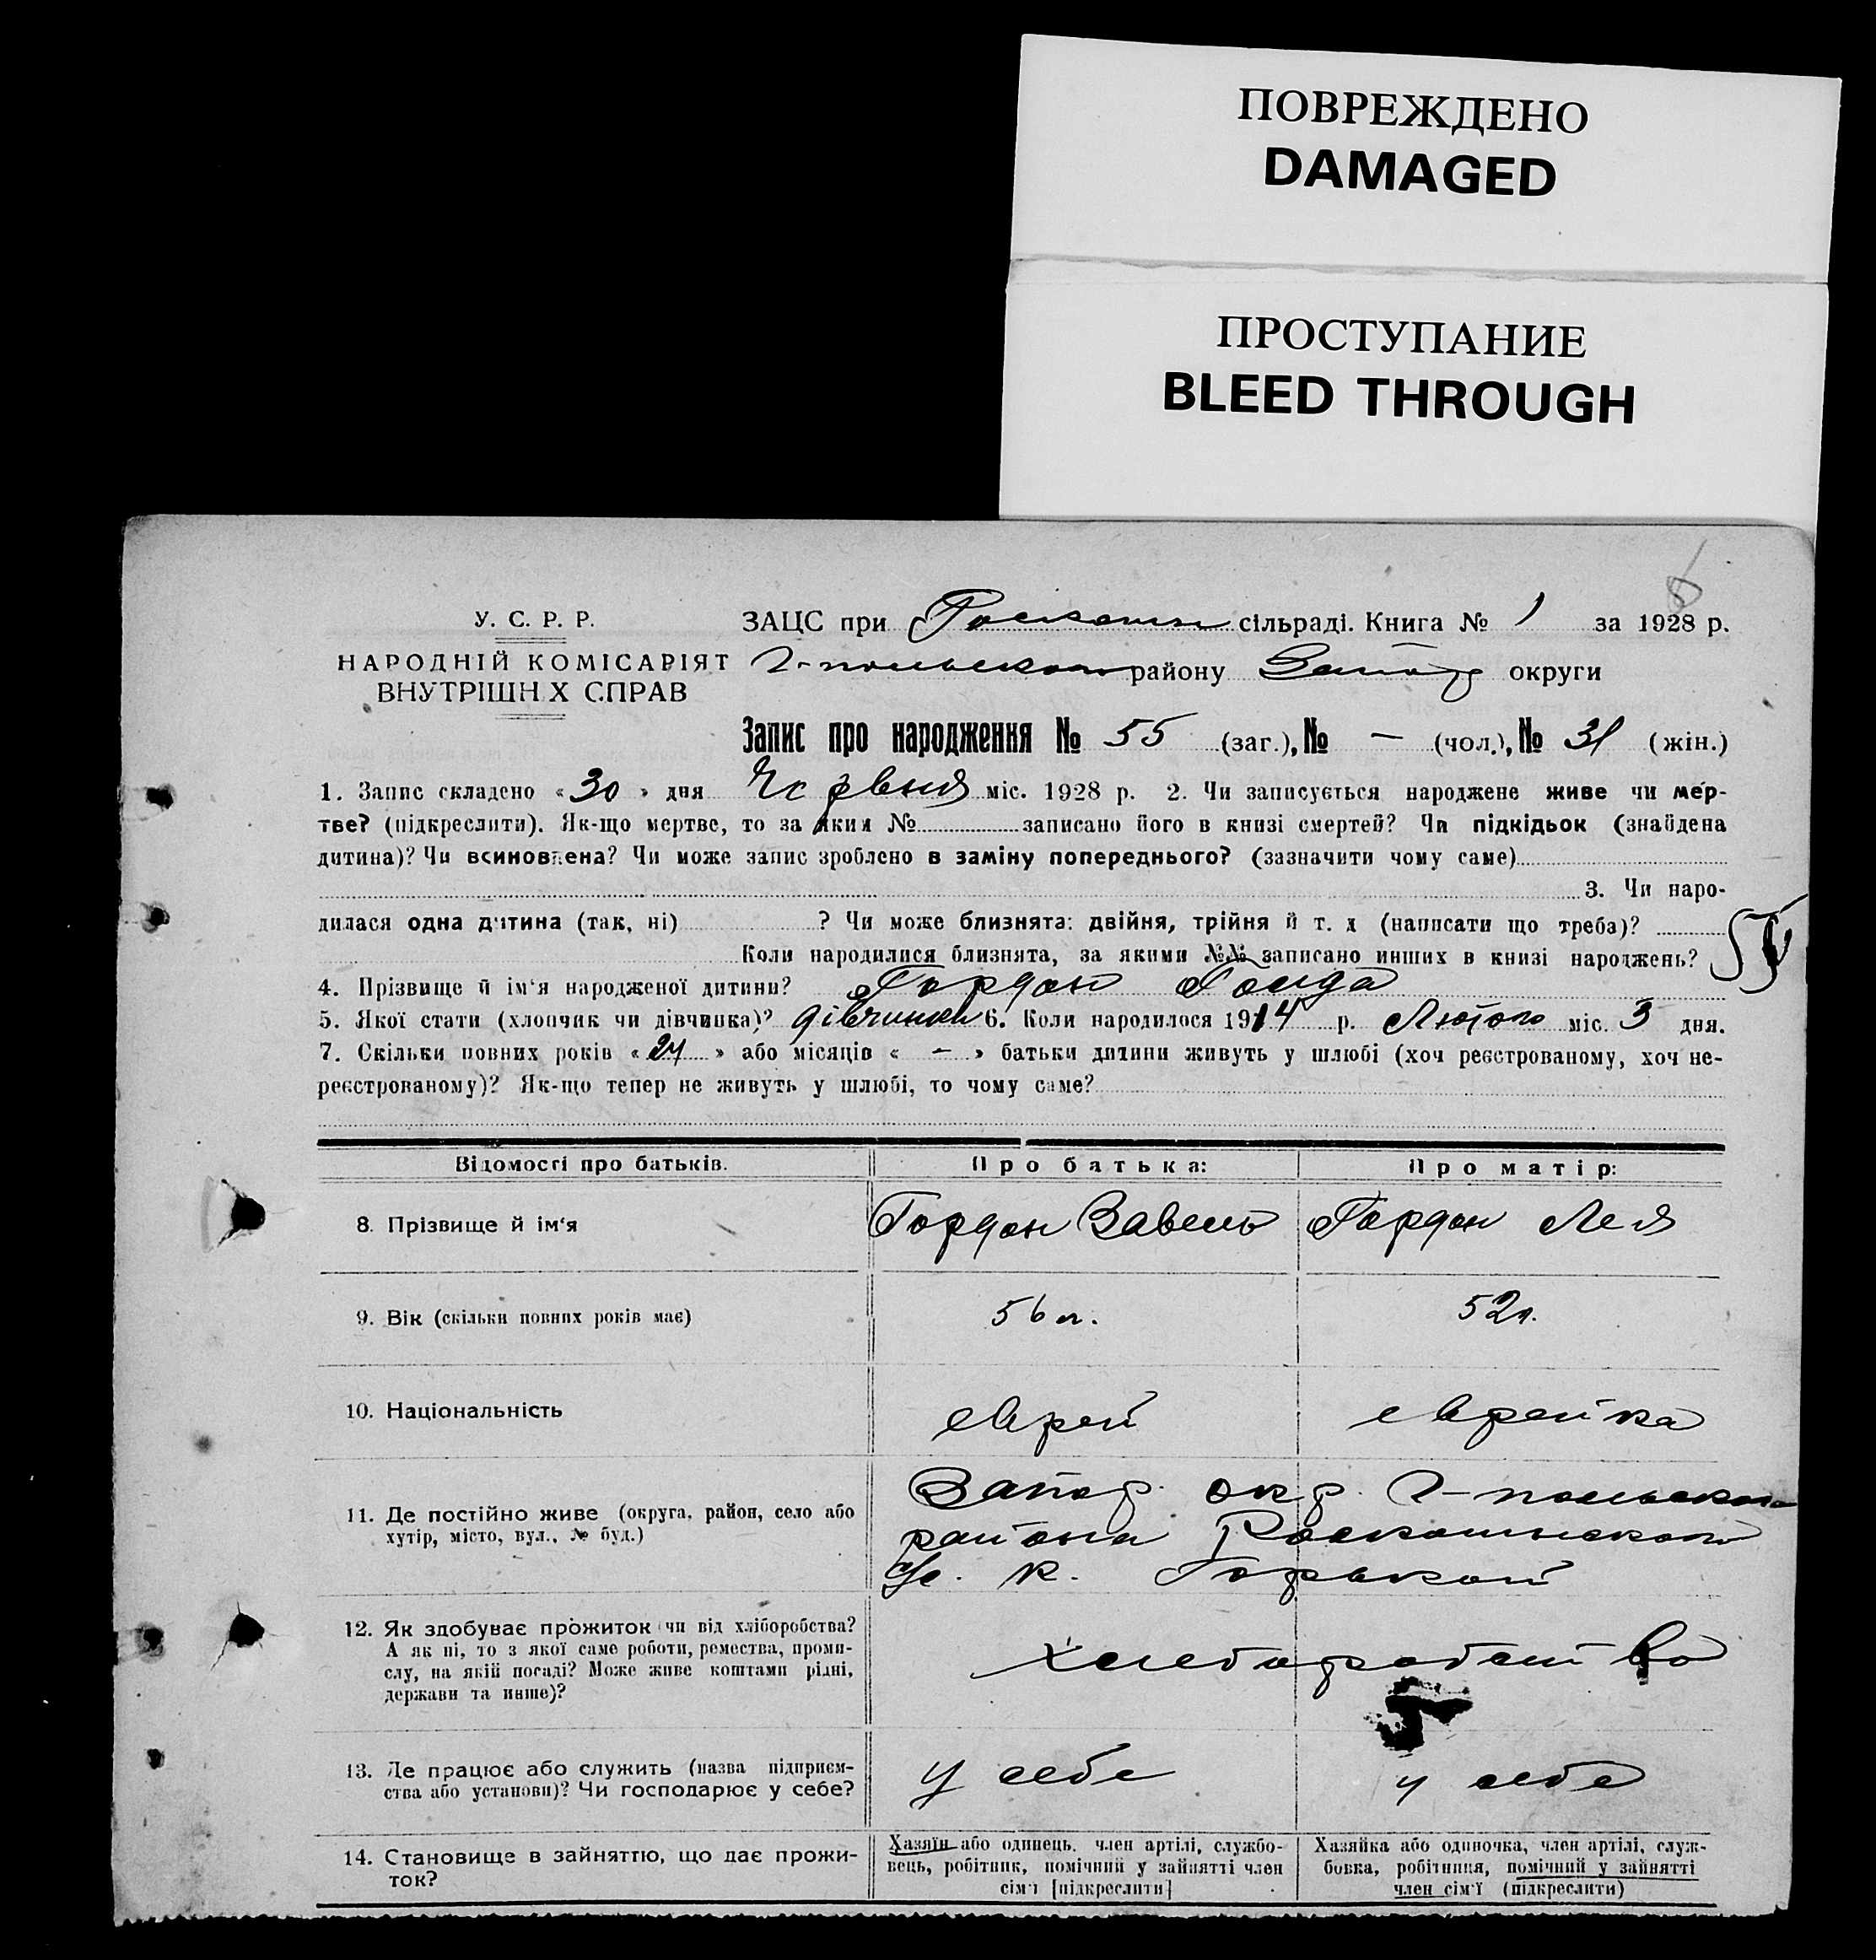 ПОВРЕЖДЕНО
DAMAGED
ПРОСТУПАНИЕ
BLEED THROUGH
8
У. С. Р. Р.
НАРОДНІЙ КОМІСАРІЯТ
ВНУТРІШН Х СПРАВ
ЗАЦС при сільраді. Книга № 1 за 1928 р.
району Запор округи
Запис про народження № 55 (заг.), № — (чол.), № 31 (жін.)
1. Запис складено «30» дня Червня міс. 1928 р. 2. Чи записується народжене живе чи мер-
тве? (підкреслити). Як-що мертве, то за яким № записано його в книзі смертей? Чи підкідьок (знайдена
дитина)? Чи всиновлена? Чи може запис зроблено в заміну попереднього? (зазначити чому саме)
3. Чи наро-
дилася одна дитина (так, ні) ? Чи може близнята: двійня, трійня й т. д (написати що треба)?
Коли народилися близнята, за якими №№ записано инших в книзі народжень?
4. Прізвище й ім'я народженої дитини? Гордон
5. Якої стати (хлопчик чи дівчинка)? дівчинка 6. Коли народилося 1914 р. Лютого міс. 3 дня.
7. Скільки повних років «24» або місяців « — » батьки дитини живуть у шлюбі (хоч реєстрованому, хоч не-
реєстрованому)? Як-що тепер не живуть у шлюбі, то чому саме?
Відомості про батьків. Про батька: Про матір:
8. Прізвище й ім'я Гордон Завель Гордон Лея
9. Вік (скільки повних років має) 56 л. 52 л.
10. Національність еврей еврейка
11. Де постійно живе (округа, район, село або
хутір, місто, вул., № буд.)
Запор. окр. 2-польского
района Роскошнского
с/с. к. Горькой
12. Як здобуває прожиток чи від хліборобства?
А як ні, то з якої саме роботи, ремества, проми-
слу, на якій посаді? Може живе коштами рідні,
держави та инше)?
хлебоработство
13. Де працює або служить (назва підприєм-
ства або установи)? Чи господарює у себе?
у себе у себе
14. Становище в зайняттю, що дає прожи-
ток?
Хазяїн або одинець, член артілі, службо-
вець, робітник, помічний у зайнятті член
сім'ї [підкреслити]
Хазяйка або одиночка, член артілі, служ-
бовка, робітниця, помічний у зайнятті
член сім'ї (підкреслити)